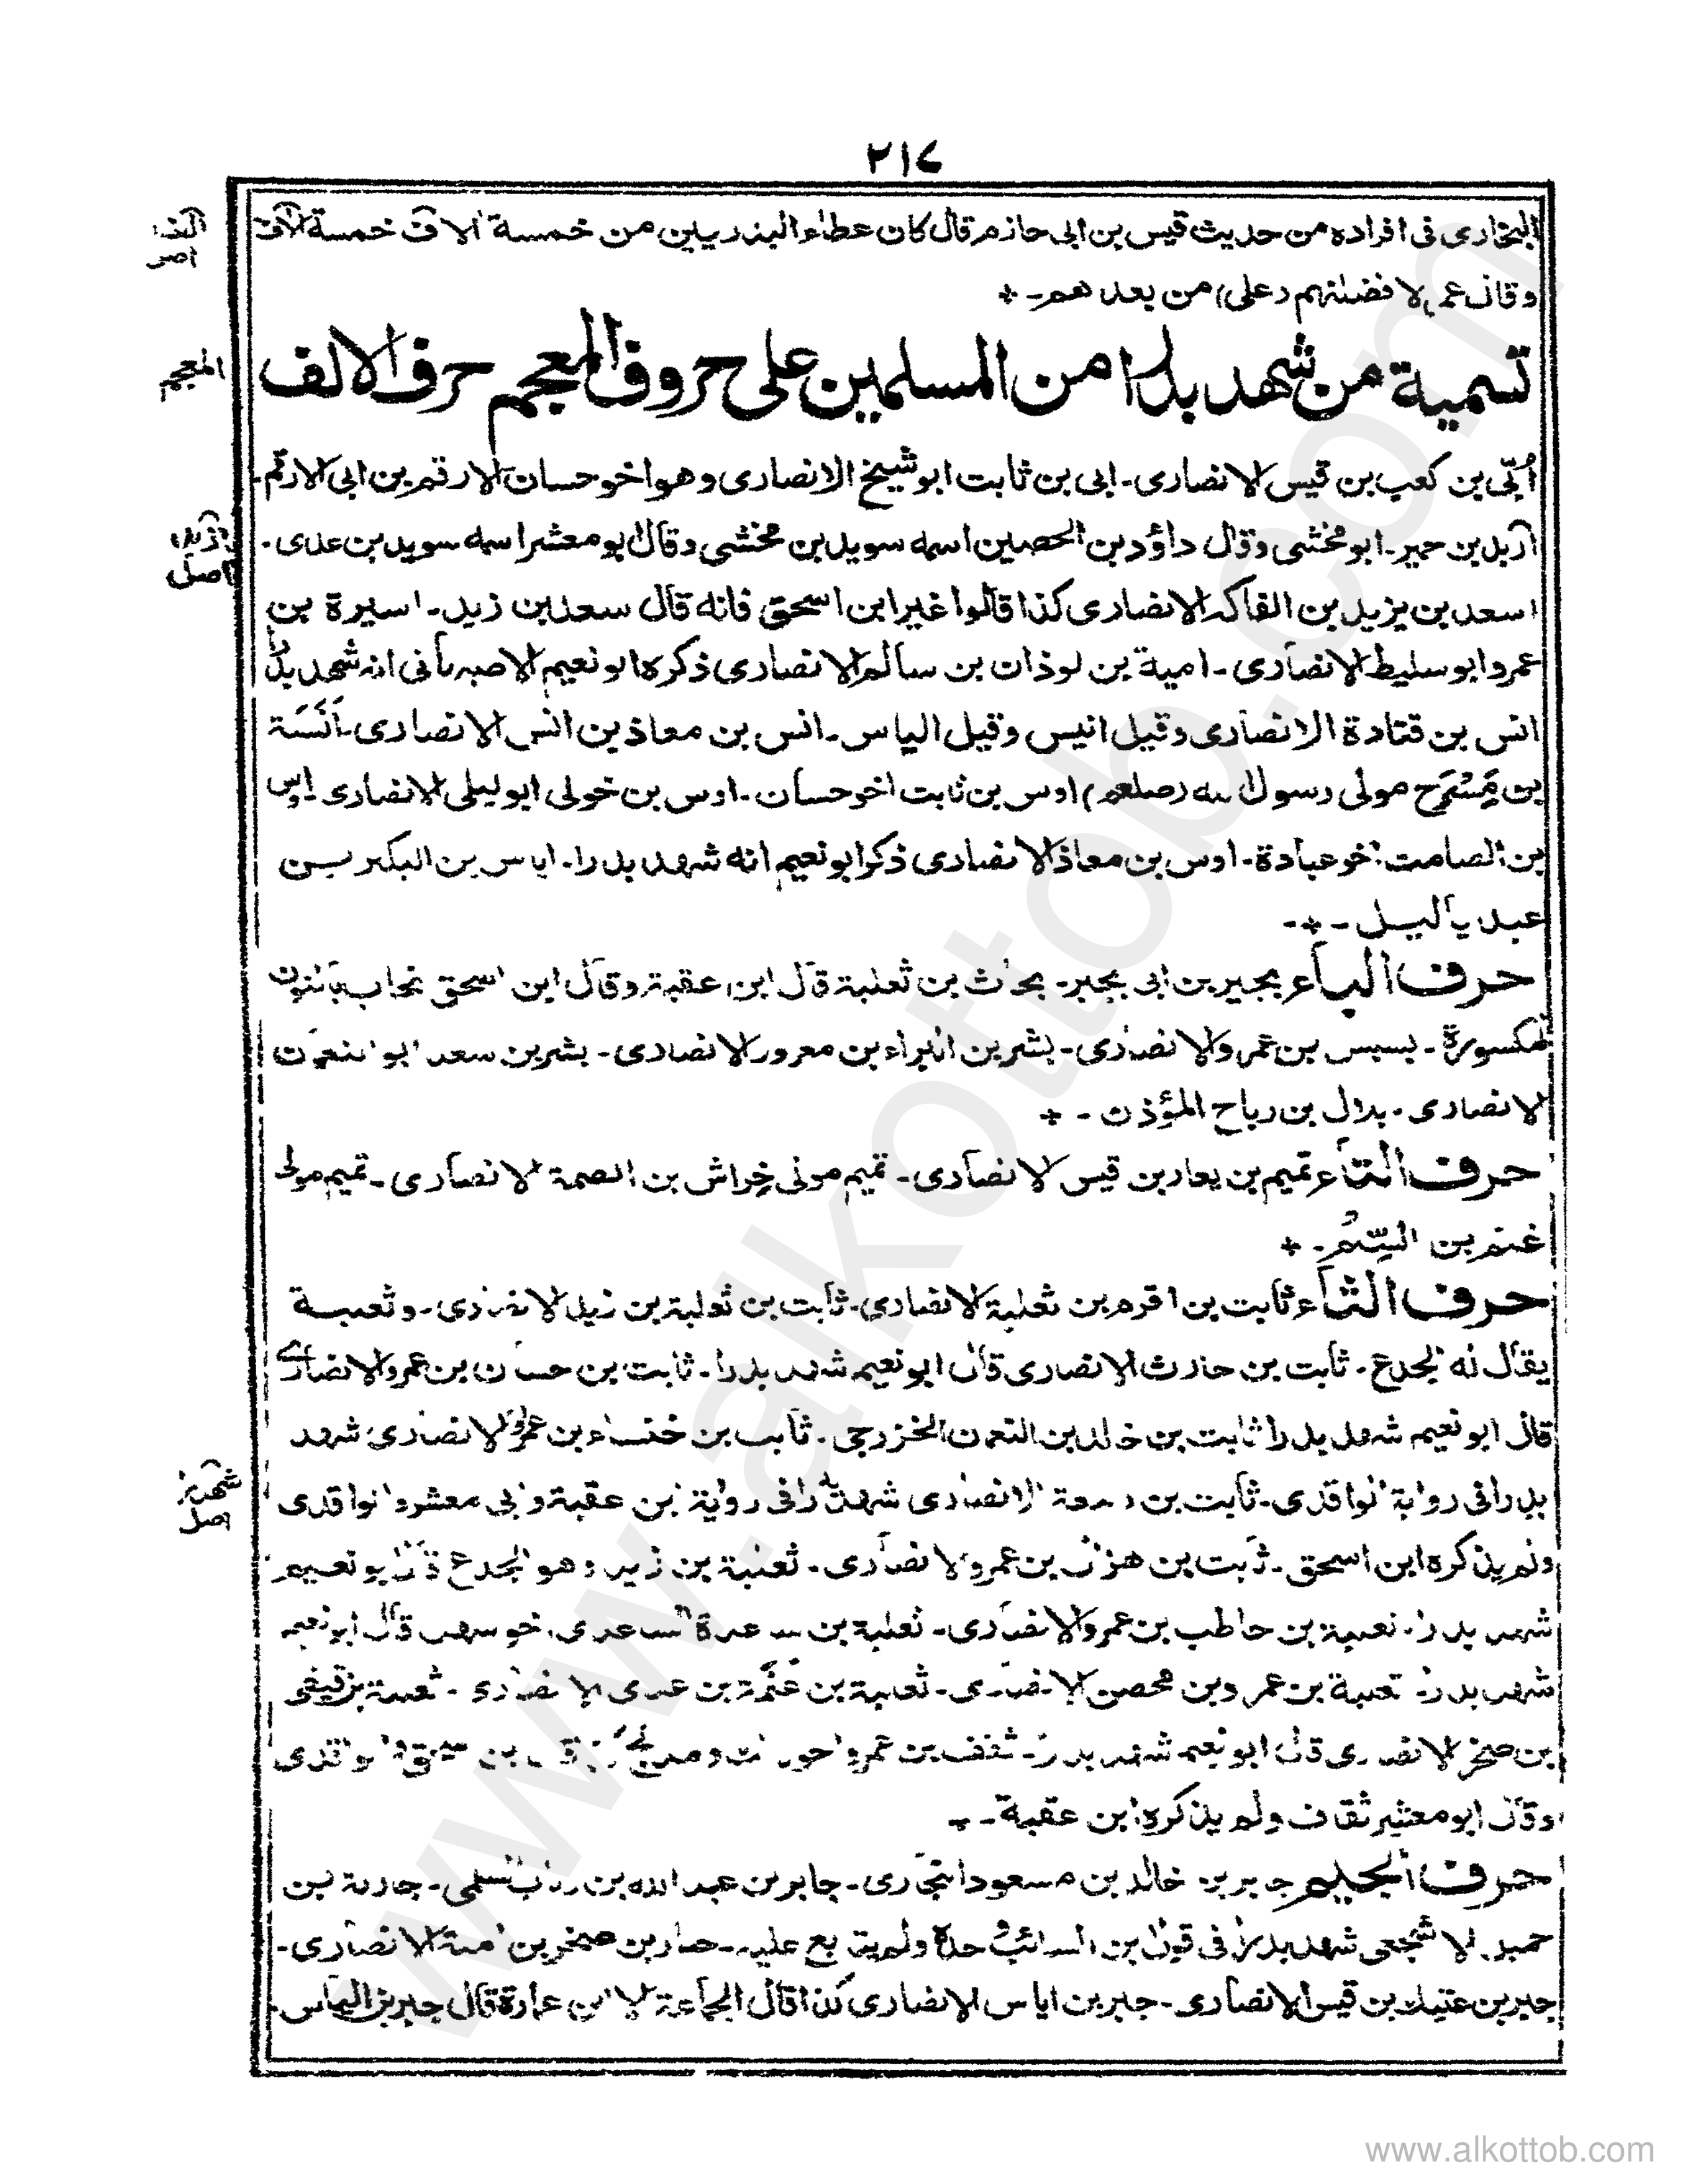 ٢١٧
البخارى فى افراده من حديث قيس بن ابى حازم قال كان عطاء البدريين من خمسة الاف خمسة الاف
وقال عمر لا فضلنهم (على) من بعدهم ـ +
تسمية من شهد بدرا من المسلمين على حروف المعجم حرف الالف
المعجم
اُبَىّ بن كعب بن قيس الانصارى ـ ابى بن ثابت ابو شيخ الانصارى وهو اخو حسان الارقم بن ابى الارقم ـ
اربد بن حمير ـ ابو مخشى وقال داؤد بن الحصين اسمه سويد بن مخشى وقال ابو معشر اسمه سويد بن عدى ـ
اصل
اسعد بن يزيد بن الفاكه الانصارى كذا قالوا غير ابن اسحق فانه قال سعد بن زيد ـ اسيرة بن
عمرو ابو سليط الانصارى ـ امية بن لوذان بن سالم الانصارى ذكره ابو نعيم الاصبهانى انه شهد بدرا
انس بن قتادة الانصارى وقيل انيس وقيل الياس ـ انس بن معاذ بن انس الانصارى ـ اَنَسَة
بن مَِسْرَح مولى رسول الله (صلعم) اوس بن ثابت اخو حسان ـ اوس بن خولى ابو ليلى الانصارى ـ اوس
بن الصامت اخو عبادة ـ اوس بن معاذ الانصارى ذكر ابو نعيم انه شهد بدرا ـ اياس بن البكير بن
عبد ياليل ـ + ـ
حرف الباء بجير بن ابى بجير ـ بحاث بن ثعلبة قال ابن عقبة وقال ابن اسحق نحاب بالنون
المكسورة ـ بسبس بن عمرو الانصارى ـ بشر بن البراء بن معرور الانصارى ـ بشر بن سعد ابو النعمان
الانصارى ـ بلال بن رباح المؤذن ـ +
حرف التاء تميم بن يعار بن قيس الانصارى ـ تميم مولى خِراش بن الصمة الانصارى ـ تميم مولى
غنم بن السِّلم ـ +
حرف الثاء ثابت بن اقرم بن ثعلبة الانصارى ـ ثابت بن ثعلبة بن زيد الانصارى ـ وثعلبة
يقال له الجدع ـ ثابت بن حارث الانصارى قال ابو نعيم شهد بدرا ـ ثابت بن حسان بن عمرو الانصارى
قال ابو نعيم شهد بدرا ثابت بن خالد بن النعمن الخزرجى ـ ثابت بن خنساء بن عمرو الانصارى شهد
بدرا فى رواية الواقدى ـ ثابت بن الانصارى شهد بدرا فى رواية ابن عقبة وابى معشر والواقدى
اصل
ولم يذكره ابن اسحق ـ ثابت بن هزال بن عمرو الانصارى ـ ثعلبة بن زيد وهو الجدع قال ابو نعيم
شهد بدرا ـ ثعلبة بن حاطب بن عمرو الانصارى ـ ثعلبة بن ساعدة الساعدى اخو سهل قال ابو نعيم
شهد بدرا ـ ثعلبة بن عمرو بن محصن الانصارى ـ ثعلبة بن عَنَمَة بن عدى الانصارى ـ ثعلبة بن قيظى
بن صخر الانصارى قال ابو نعيم شهد بدرا ـ ثقف بن عمرو اخو مالك ومدلج بن اسحق والواقدى
وقال ابو معشر ثقاف ولم يذكره ابن عقبة ـ +
حرف الجيم جابر بن خالد بن مسعود النجارى ـ جابر بن عبد الله بن رئاب السلمى ـ جارية بن
حميل الاشجعى شهد بدرا فى قول ابن السائب وحده ولم يتابع عليه ـ جبار بن صخر بن امية الانصارى ـ
جبر بن عتيك بن قيس الانصارى ـ جبر بن اياس الانصارى كذا قال الجماعة الا ابن عمارة قال جبر بن الياس ـ
www.alkottob.com
www.alkottob.com